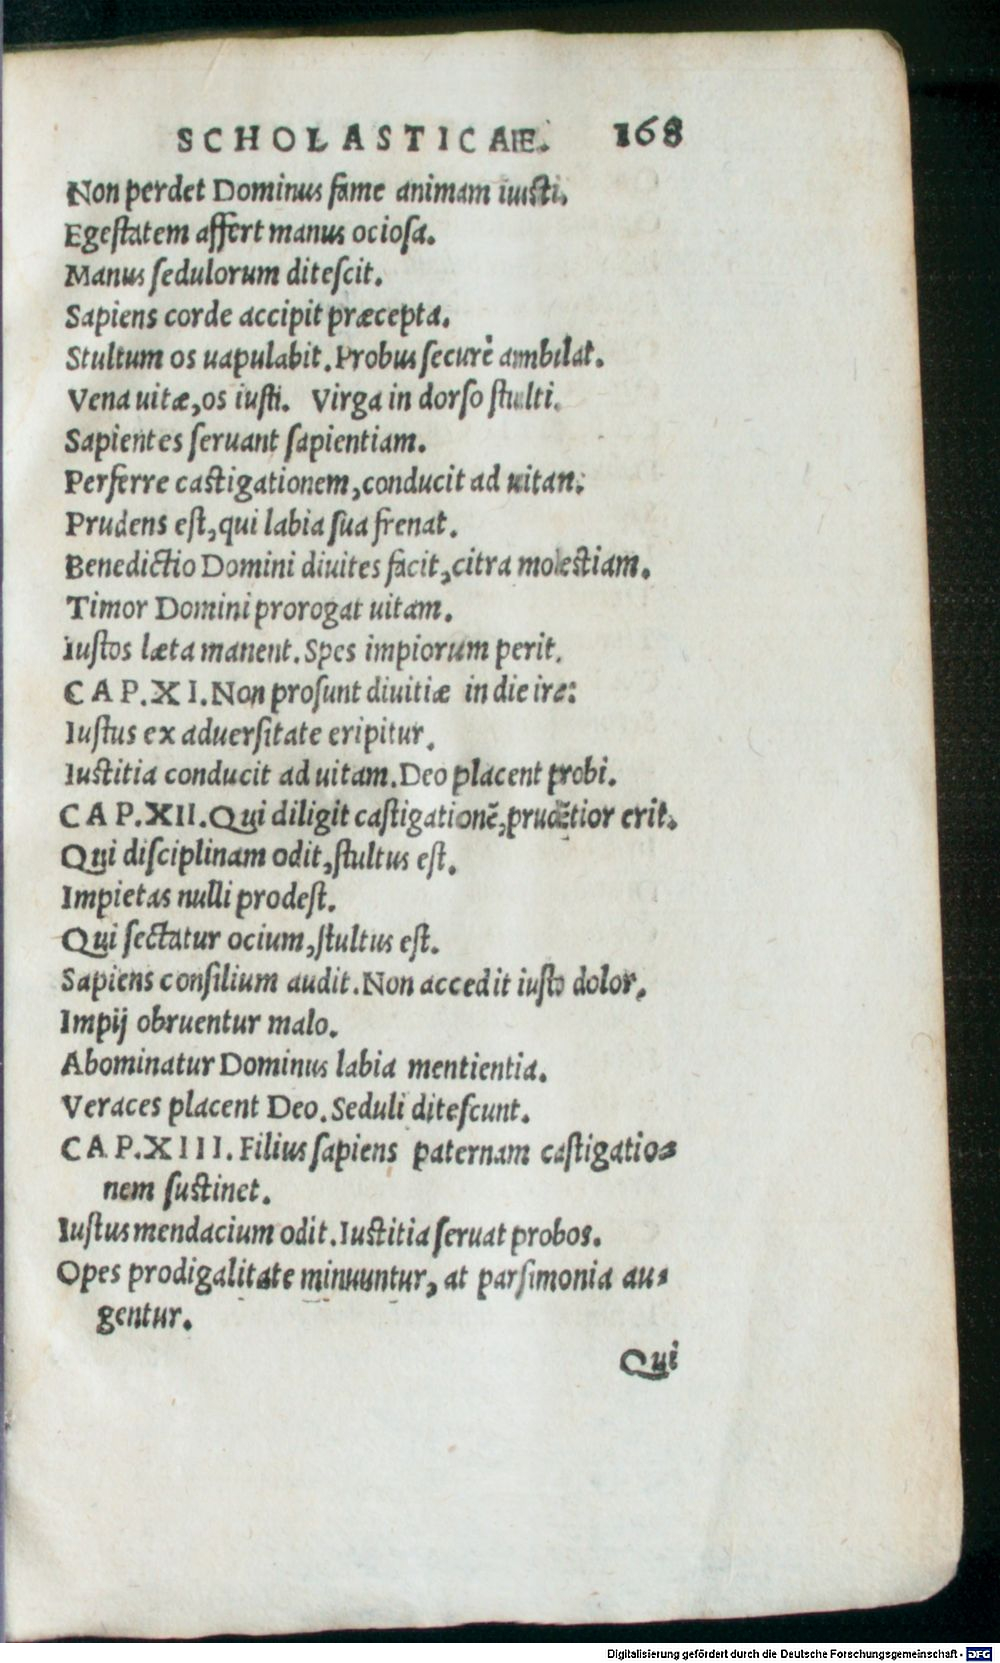 SCHOLASTICAE. 168
Non perdet Dominus fame animam iusti.
Egestatem affert manus ociosa.
Manus sedulorum ditescit.
Sapiens corde accipit præcepta.
Stultum os uapulabit. Probus securè ambulat.
Vena uitæ, os iusti. Virga in dorso stulti.
Sapientes seruant sapientiam.
Perferre castigationem, conducit ad uitam.
Prudens est, qui labia sua frenat.
Benedictio Domini diuites facit, citra molestiam.
Timor Domini prorogat uitam.
Iustos læta manent. Spes impiorum perit.
CAP. XI. Non prosunt diuitiæ in die iræ:
Iustus ex aduersitate eripitur.
Iustitia conducit ad uitam. Deo placent probi.
CAP. XII. Qui diligit castigationẽ, prudẽtior erit.
Qui disciplinam odit, stultus est.
Impietas nulli prodest.
Qui sectatur ocium, stultus est.
Sapiens consilium audit. Non accedit iusto dolor.
Impij obruentur malo.
Abominatur Dominus labia mentientia.
Veraces placent Deo. Seduli ditescunt.
CAP. XIII. Filius sapiens paternam castigatio-
nem sustinet.
Iustus mendacium odit. Iustitia seruat probos.
Opes prodigalitate minuuntur, at parsimonia au-
gentur.
Qui
Digitalisierung gefördert durch die Deutsche Forschungsgemeinschaft - DFG